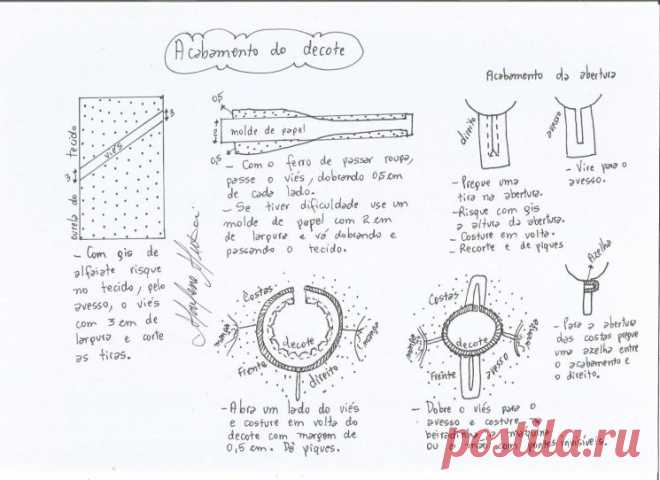 Acabamento do decote
ourela do tecido
viés
3
3
- Com giz de
alfaiate risque
no tecido, pelo
avesso, o viés
com 3 cm de
largura e corte
as tiras.
0,5
2
0,5
molde de papel
- Com o ferro de passar roupa,
passe o viés, dobrando 0,5 cm
de cada lado.
- Se tiver dificuldade use um
molde de papel com 2 cm
de largura e vá dobrando e
passando o tecido.
Acabamento da abertura
direito
avesso
- Pregue uma
tira na abertura.
- Risque com giz
a altura da abertura.
- Costure em volta.
- Recorte e dê piques
- Vire para o
avesso.
Azelha
- Para a abertura
das costas pregue
uma azelha entre
o acabamento e
o direito.
Costas
manga
decote
manga
Frente
direito
- Abra um lado do viés
e costure em volta do
decote com margem de
0,5 cm. Dê piques.
Costas
manga
decote
manga
Frente
avesso
- Dobre o viés para o
avesso e costure
beiradinha máquina
ou invisíveis.
postila.ru